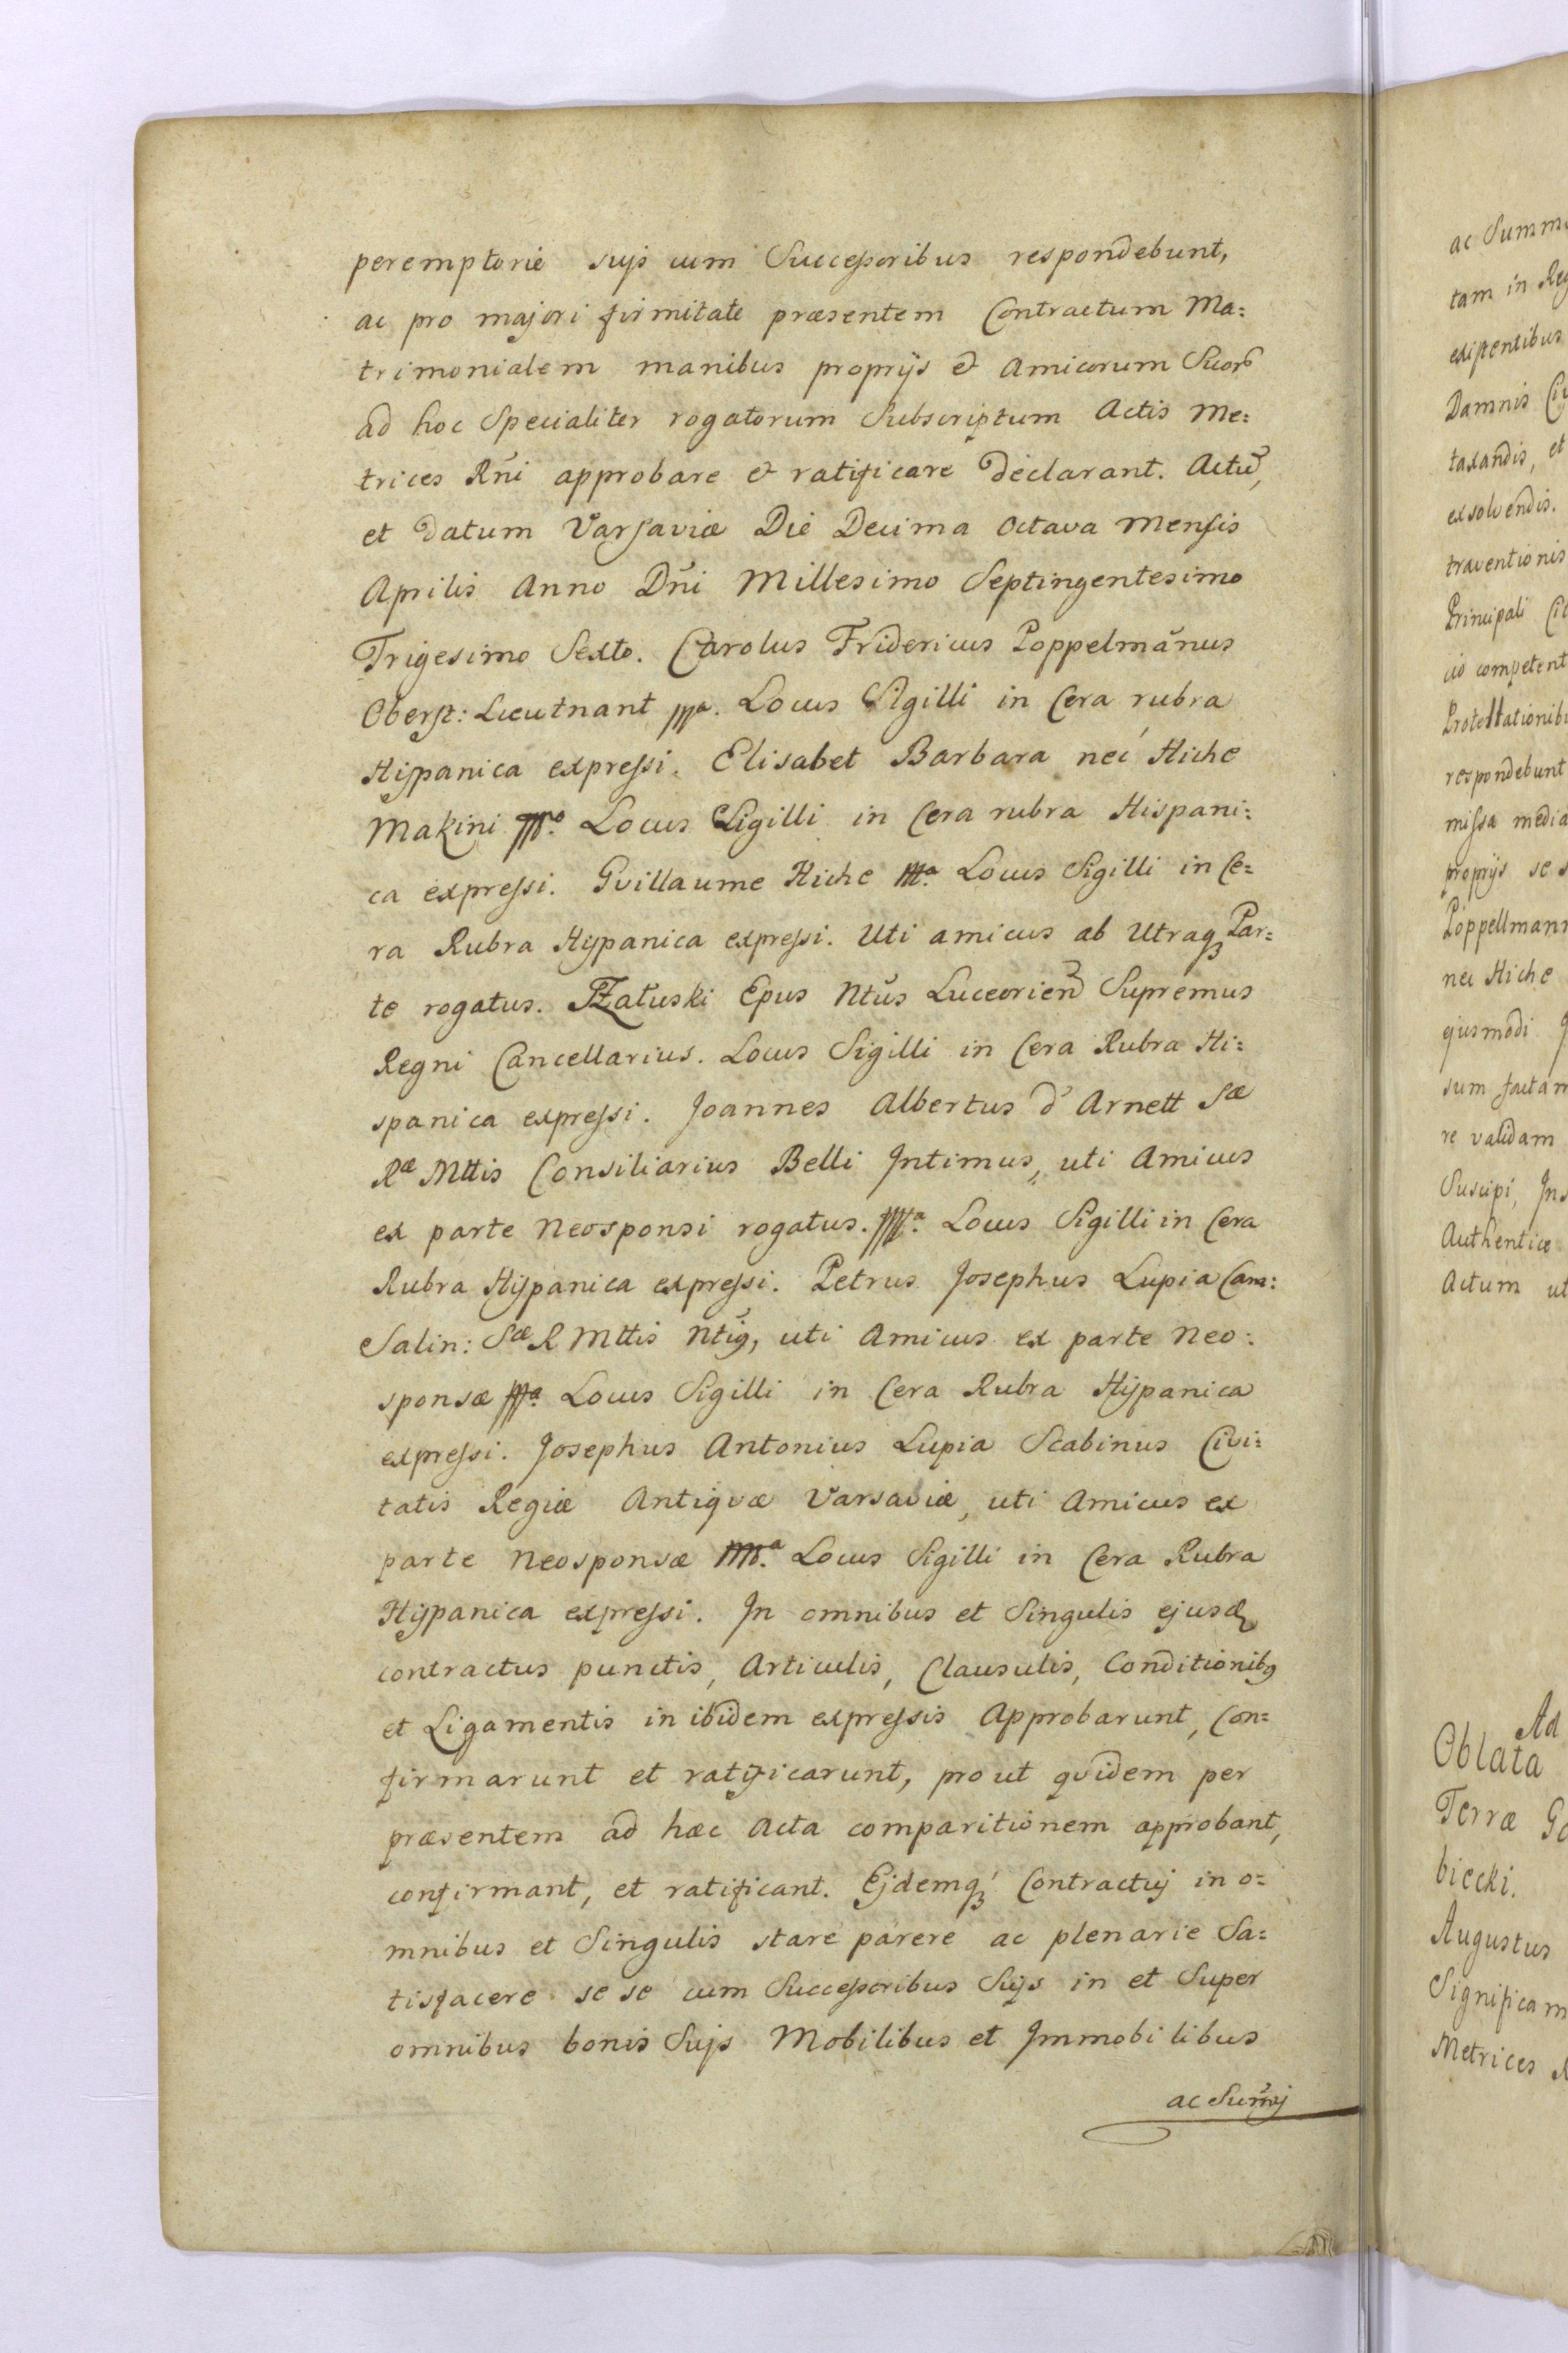 peremptorie sujs cum Successoribus respondebunt,
ac pro majori firmitate præsentem Contractum Ma:
trimonialem manibus proprijs & Amicorum Suor
ad hoc Specialiter rogatorum Subscriptum Actis Me:
trices Rñi approbare & ratificare declarant. Actũ,
et Datum Varsaviæ Die Decima Octava Mensis
Aprilis Anno Dñi Millesimo Septingentesimo
Trigesimo Sexto. Carolus Fridericus Poppelmãnus
Oberst: Lieutnant mpa. Locus Sigilli in Cera rubra
Hispanica expressi. Elisabet Barbara neé Hiche
Makini Locus Sigilli in Cera rubra Hispani:
ca expressi. Guillaume Hiche Locus Sigilli in Ce=
ra Rubra Hypanica expressi. Uti amicus ab Utraq3 Par=
te rogatus. Załuski Epus Ntus Luceorien Supremus
Regni Cancellarius. Locus Sigilli in Cera Rubra Hi=
spanica expressi. Joannes Albertus d'Arnett Sæ
Ræ Mttis Consiliarius Belli Intimus, uti Amicus
ex parte Neosponsi rogatus. Locus Sigilli in Cera
Rubra Hispanica expressi. Petrus Josephus Lupia Cam:
Salin: Sæ R Mttis Ntig, uti Amicus ex parte Neo:
sponsæ mpa Locus Sigilli in Cera Rubra Hispanica
expressi. Josephus Antonius Lupia Scabinus Civi=
tatis Regiæ Antiquæ Varsaviæ, uti Amicus ex
parte Neosponsæ Locus Sigilli in Cera Rubra
Hispanica expressi. In omnibus et Singulis ejusd
contractus punctis, Articulis, Clausulis, Conditionibg
et Ligamentis in ibidem expressis Approbarunt, Con=
firmarunt et ratificarunt, prout quidem per
præsentem ad hæc Acta comparitionem approbant,
confirmant, et ratificant. Ejdemq3 Contractuj in o=
mnibus et Singulis stare parere ac plenarie Sa=
tisfacere se se cum Successoribus Sujs in et Super
omnibus bonis Sujs Mobilibus et Immobilibus
ac Sum̃j
ac Summ
tam in Reg
existentibus
Damnis
taxandis, et
exsolvendis.
traventionis
Principali
id competent
Protestationib
respondebunt
missa media
proprijs se s
Poppellmann
neé Hiche
ejusmodi
sum factam
re validam
Suscipi, Ins
Authentice
Actum ut
Ad
Oblata
Terræ
biecki.
Augustus
Significam
Metrices